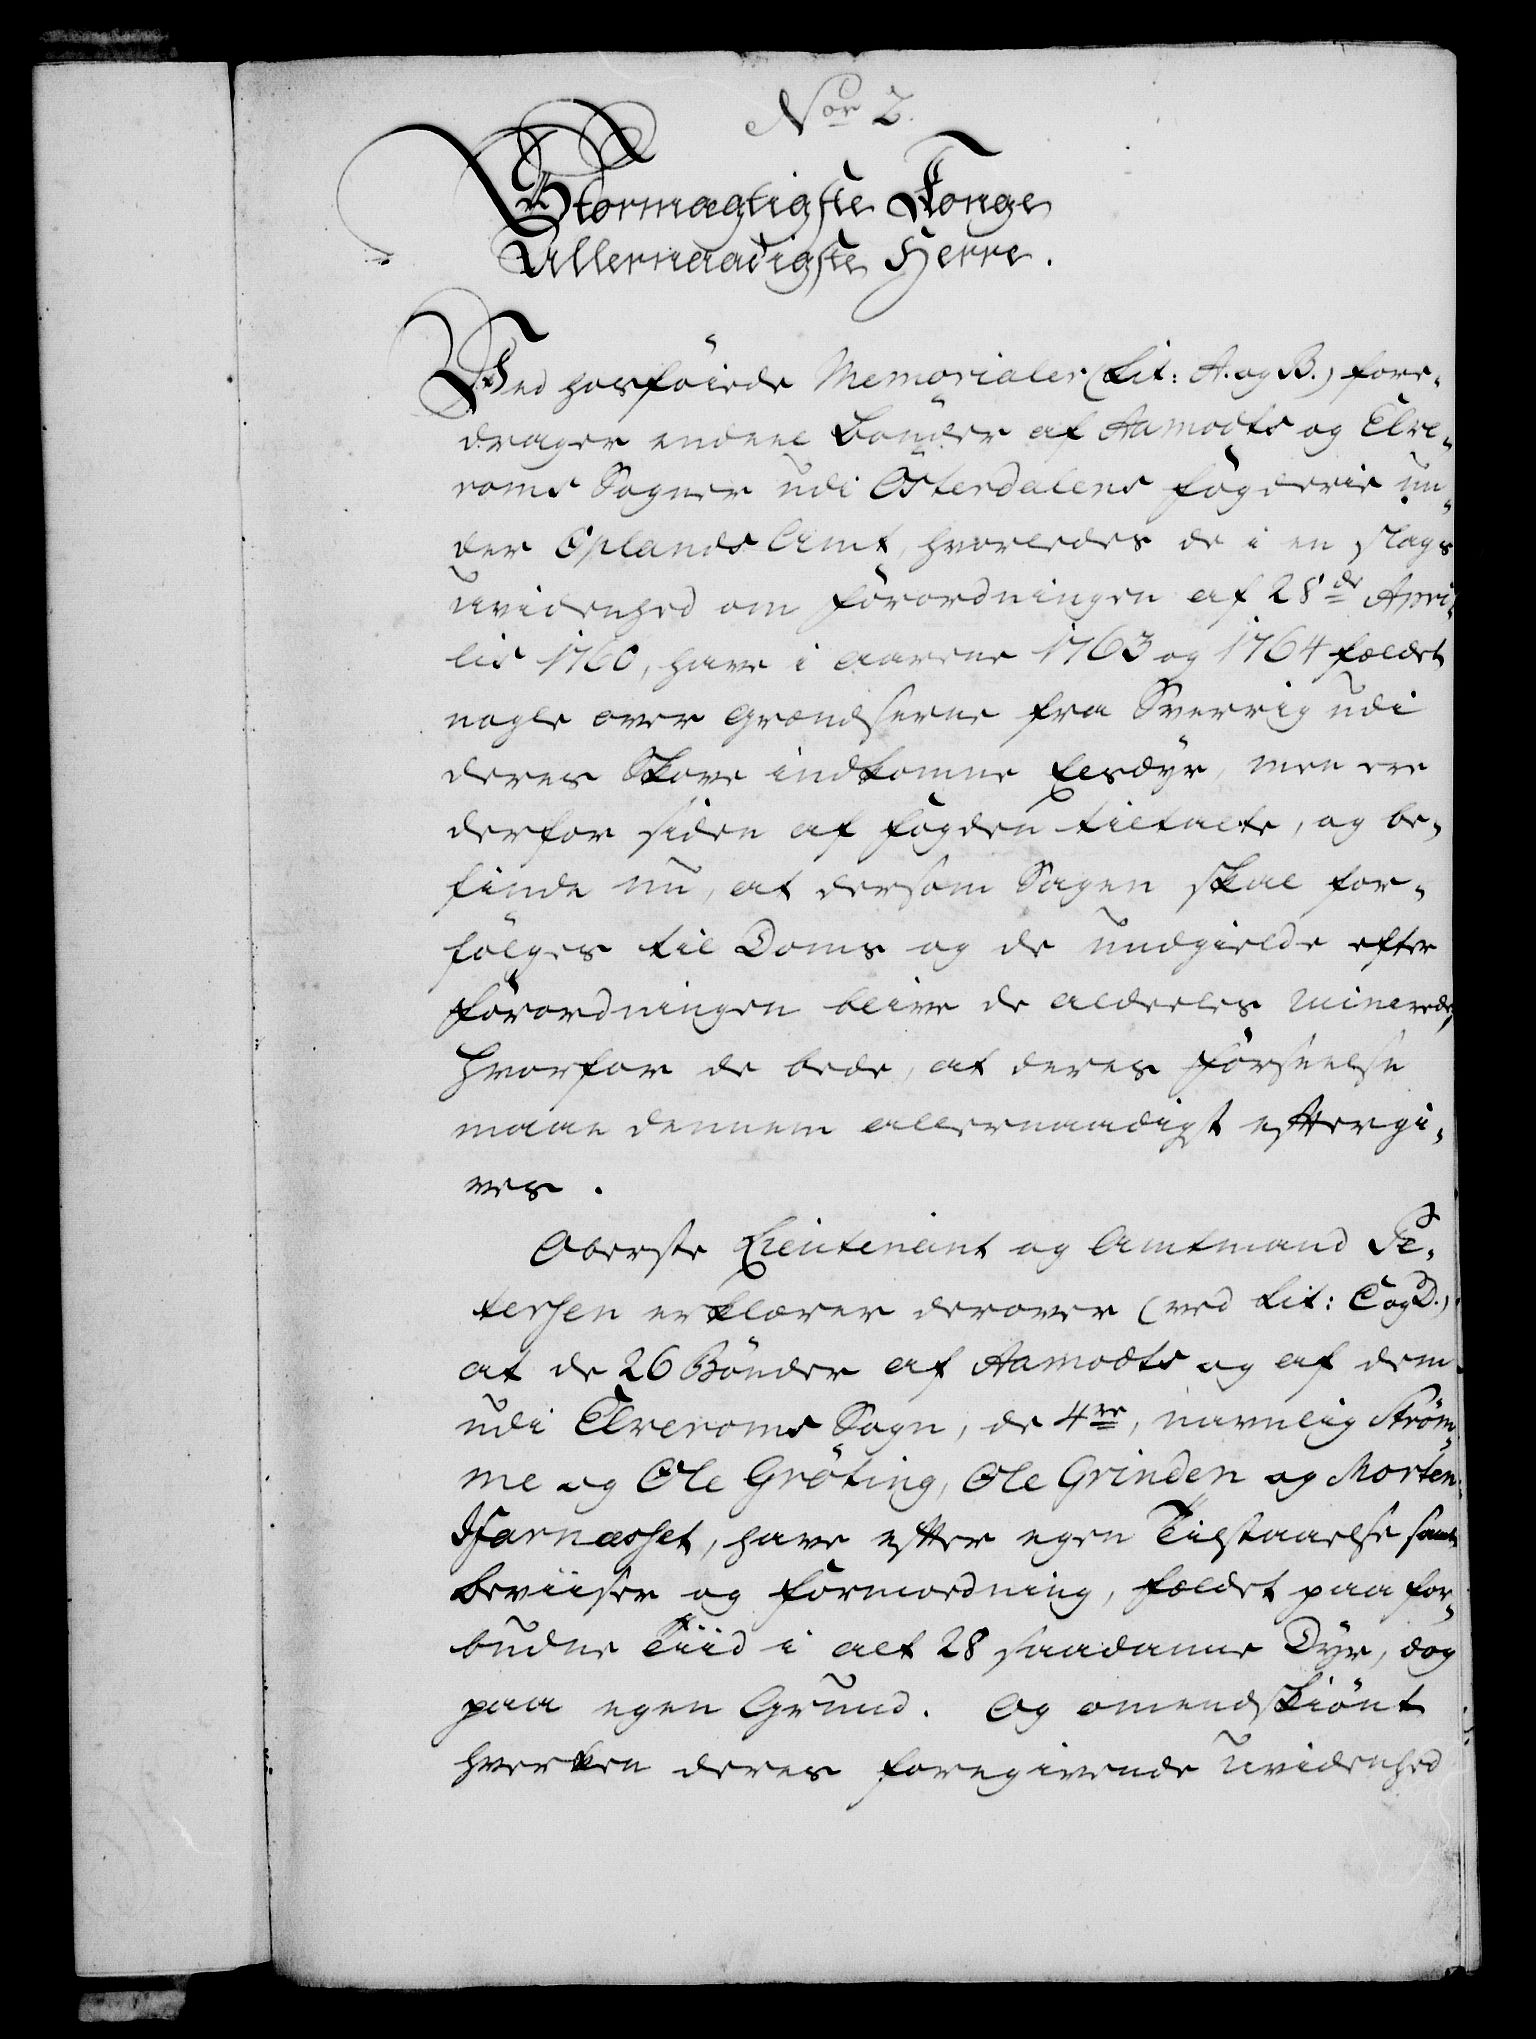 Nor 2.
Stormægtigste Konge
Allernaadigste Herre.
Ved hosföiede Memorialer (Lit: A. og B.) fore-
drager endeel Bönder af Aamodts og Elve-
roms Sogner udi Österdalens fogderie un-
der Oplands Amt, hvorledes de i en slags
uvidenhed om Forordningen af 28de Apri-
lis 1760, have i aarene 1763 og 1764 fældet
nogle over Grændserne fra Sverrig udi
deres Skove indkomne Elsdyr, men ere
derfor siden af fogden tiltalte, og be-
finde nu, at dersom Sagen skal for-
fölges til Doms og de undgielde efter
Forordningen blive de aldeeles ruinerede,
Hvorfor de bede, at deres Forseelse
maae dennem allernaadigst eftergi-
ves.
Oberste Lieutenant og Amtmand Pe-
tersen erklærer derover (ved Lit: C og D.)
at de 26 Bönder af Aamodts og af dem
udi Elveroms Sogn, de 4re, navnlig Ström-
me og Ole Gröting, Ole Grinden og Morten
Hfarnæsset, have efter egen Tilstaaelse samt
Beviiser og Formodning, fældet paa for-
budne Tiid i alt 28 saadanne Dyr, dog
paa egen Grund. Og omendskiönt
hverken deres foregivende Uvidenhed